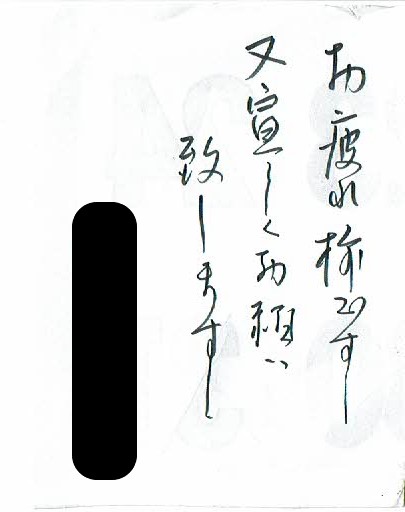 お疲れ様です
又宜しくお願い
致します